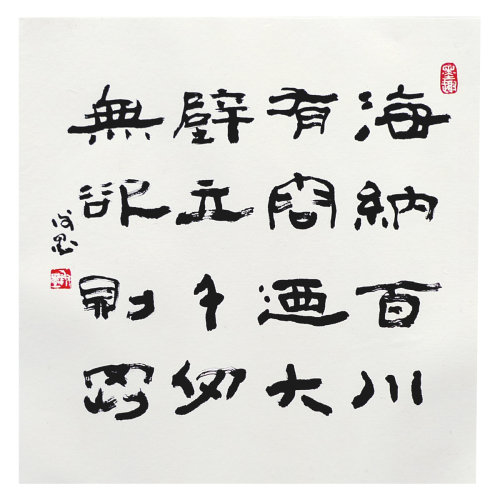 海納百川
有容迺大
壁立千仞
無欲則剛